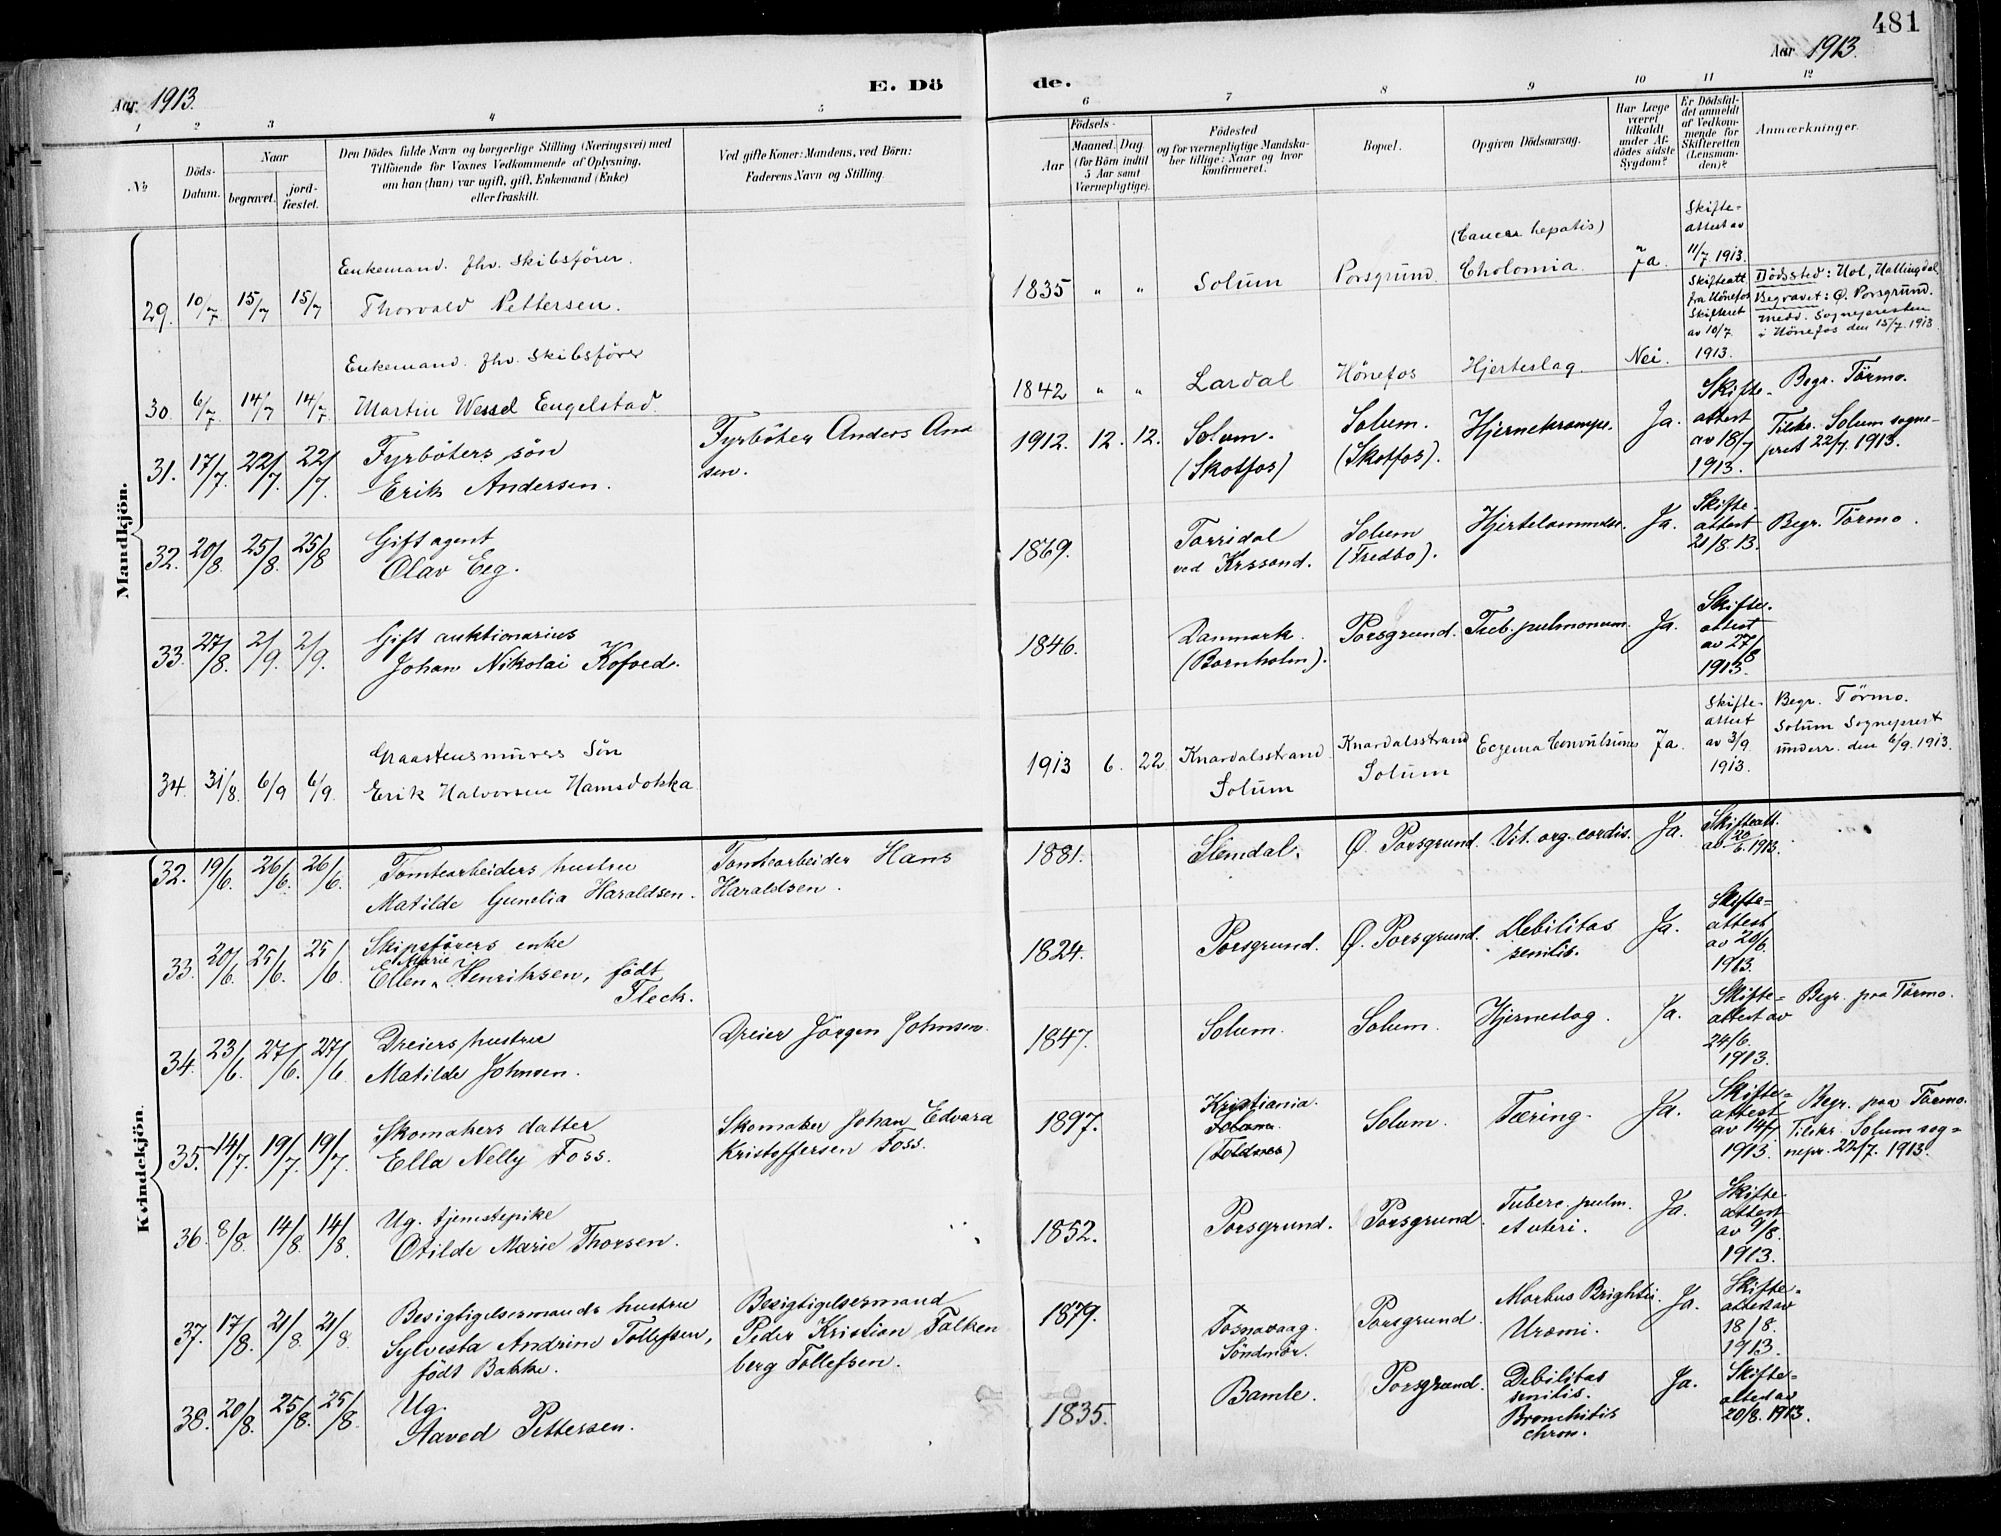 481
Aar 1913.
E. Dö
de.
Aar 1913.
1 2 3 4 5 6 7 8 9 10 11 12
No
Döds-Datum.
Naar
begravet.
jord-fæstet.
Den Dödes fulde Navn og borgerlige Stilling (Næringsvei) med
Tilföiende for Voxnes Vedkommende af Oplysning,
om han (hun) var ugift, gift, Enkemand (Enke)
eller fraskilt.
Ved gifte Koner: Mandens, ved Börn:
Faderens Navn og Stilling.
Födsels-
Aar
Maaned. Dag.
(for Börn indtil
5 Aar samt
Værnepligtige).
Födested
og for værnepligtige Mandska-
ber tillige: Naar og hvor
konfirmeret.
Bopæl.
Opgiven Dödsaarsag.
Har Læge
været
tilkaldt
under Af-
dödes sidste
Sygdom?
Er Dödsfal-
det anmeldt
af Vedkom-
mende for
Skifteretten
(Lensman-
den)?
Anmærkninger.
Mandkjön.
29. 10/7 15/7 15/7
Enkemand. fhv. Skibsförer.
Thorvald Pettersen.
1835 " " Solum Porsgrund.
(Cancer hepatis)
Cholomia. Ja.
Skifte-
attest av
11/7 1913.
30. 6/7 14/7 14/7
Enkemand. fhv. Skibsförer
Martin Wessel Engelstad
1842 " " Lardal Hönefos Hjerteslag. Nei.
Skifteatt
fra Hönefos
Skifteret
av 10/7
1913.
Dödssted: Hol, Hallingdal
Begravet: Ö. Porsgrund.
medd. Sognepresten
i Hönefos den 15/7. 1913
31. 17/7. 22/7. 22/7.
Fyrböters sön
Erik Andersen.
Fyrböter Anders An
sen.
1912. 12. 12. Solum.
(Skotfos)
Solum.
(Skotfos).
Hjernekrampe. Ja.
Skifte-
attest
av 18/7
1913.
Begr. Törmo.
Tilskr. Solum sogne-
prest 22/7. 1913.
32. 20/8. 25/8. 25/8
Gift agent
Olav Eeg.
1869.
Torridal
ved Krssand.
Solum
(Fredbo).
Hjertelammelse. Ja.
Skifte-
attest
21/8. 13.
Begr. Törmo.
33. 27/8. 2/9. 2/9.
Gift auktionarius
Johan Nikolai Kofoed.
1846.
Danmark.
(Bornholm).
Porsgrund. Tub. pulmonum. Ja.
Skifte-
attest
av 27/8
1913.
34. 31/8. 6/9 6/9.
Graastensmurers Sön
Erik Halvorsen Hamsdokka
1913 6. 22. Knardalsstrand
Solum
Knardalsstrand
Solum
Eczema Convulsiones Ja.
Skifte-
attest
av 3/9.
1913.
Begr. Törmo.
Solum Sogneprest
underr. den 6/9. 1913.
Kvindekjön.
32. 19/6. 26/6. 26/6.
Tomtearbeiders hustru
Matilde Gunelia Haraldsen.
Tomtearbeider Hans
Haraldsen.
1881. Slemdal. Ö. Porsgrund. Vit. org. cordis. Ja.
Skifteatt.
av 20/6. 1913.
33. 20/6. 25/6. 25/6.
Skipsförers enke
Marie
Ellen Henriksen, födt
Fleck.
1824. Porsgrund. Ö. Porsgrund.
Debilitas
senilis.
Ja.
Skifte-
attest
av 20/6.
1913.
34. 23/6. 27/6. 27/6.
Dreiers hustru
Matilde Johnsen.
Dreier Jörgen Johnsen.
1847. Solum. Solum. Hjerneslag. Ja.
Skifte-
attest av
24/6.
1913.
Begr. paa Törmo.
35. 14/7. 19/7. 19/7.
Skomakers datter
Ella Nelly Foss.
Skomaker Johan Edvard
Kristoffersen Foss.
1897.
Kristiania.
Solum. Tæring. Ja.
Skifte-
attest
av 14/7.
1913.
Begr. paa Törmo.
Tilskr. Solum sog-
nepr. 22/7. 1913.
36. 8/8. 14/8. 14/8.
Ug. tjenestepike
Otilde Marie Thorsen.
1852. Porsgrund. Porsgrund.
Tuberc. pulm.
et uteri.
Ja.
Skifte-
attest
av 9/8.
1913.
37. 17/8. 21/8. 21/8.
Besigtigelsesmands hustru
Sylvesta Andrine Tollefsen,
födt Bakke.
Besigtigelsesmand
Peder Kristian Falken
berg Tollefsen.
1879.
Fosnavaag.
Söndmör.
Porsgrund.
Morbus Brightii.
Uræmi.
Ja.
Skifte-
attest av
18/8.
1913.
38. 20/8. 25/8. 25/8.
Ug.
Aaved Pettersen.
1835. Bamle. Porsgrund.
Debilitas
senilis.
Bronchitis
chron.
Ja.
Skifte-
attest av
20/8. 1913.